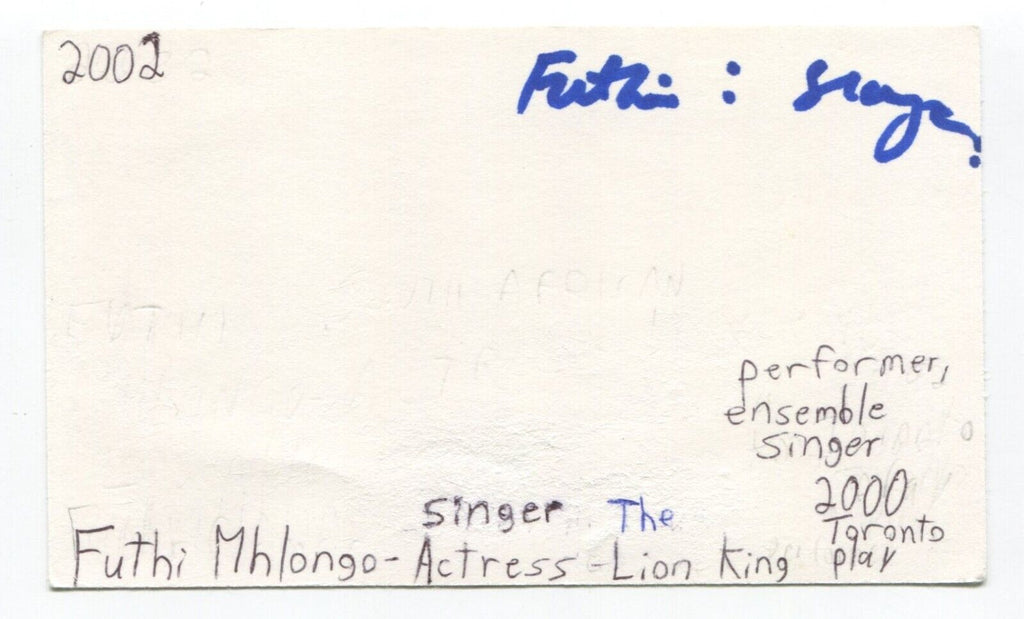 2002
Futhi :
performer,
ensemble
singer
2000
Toronto
play
singer The
Futhi Mhlongo - Actress - Lion King